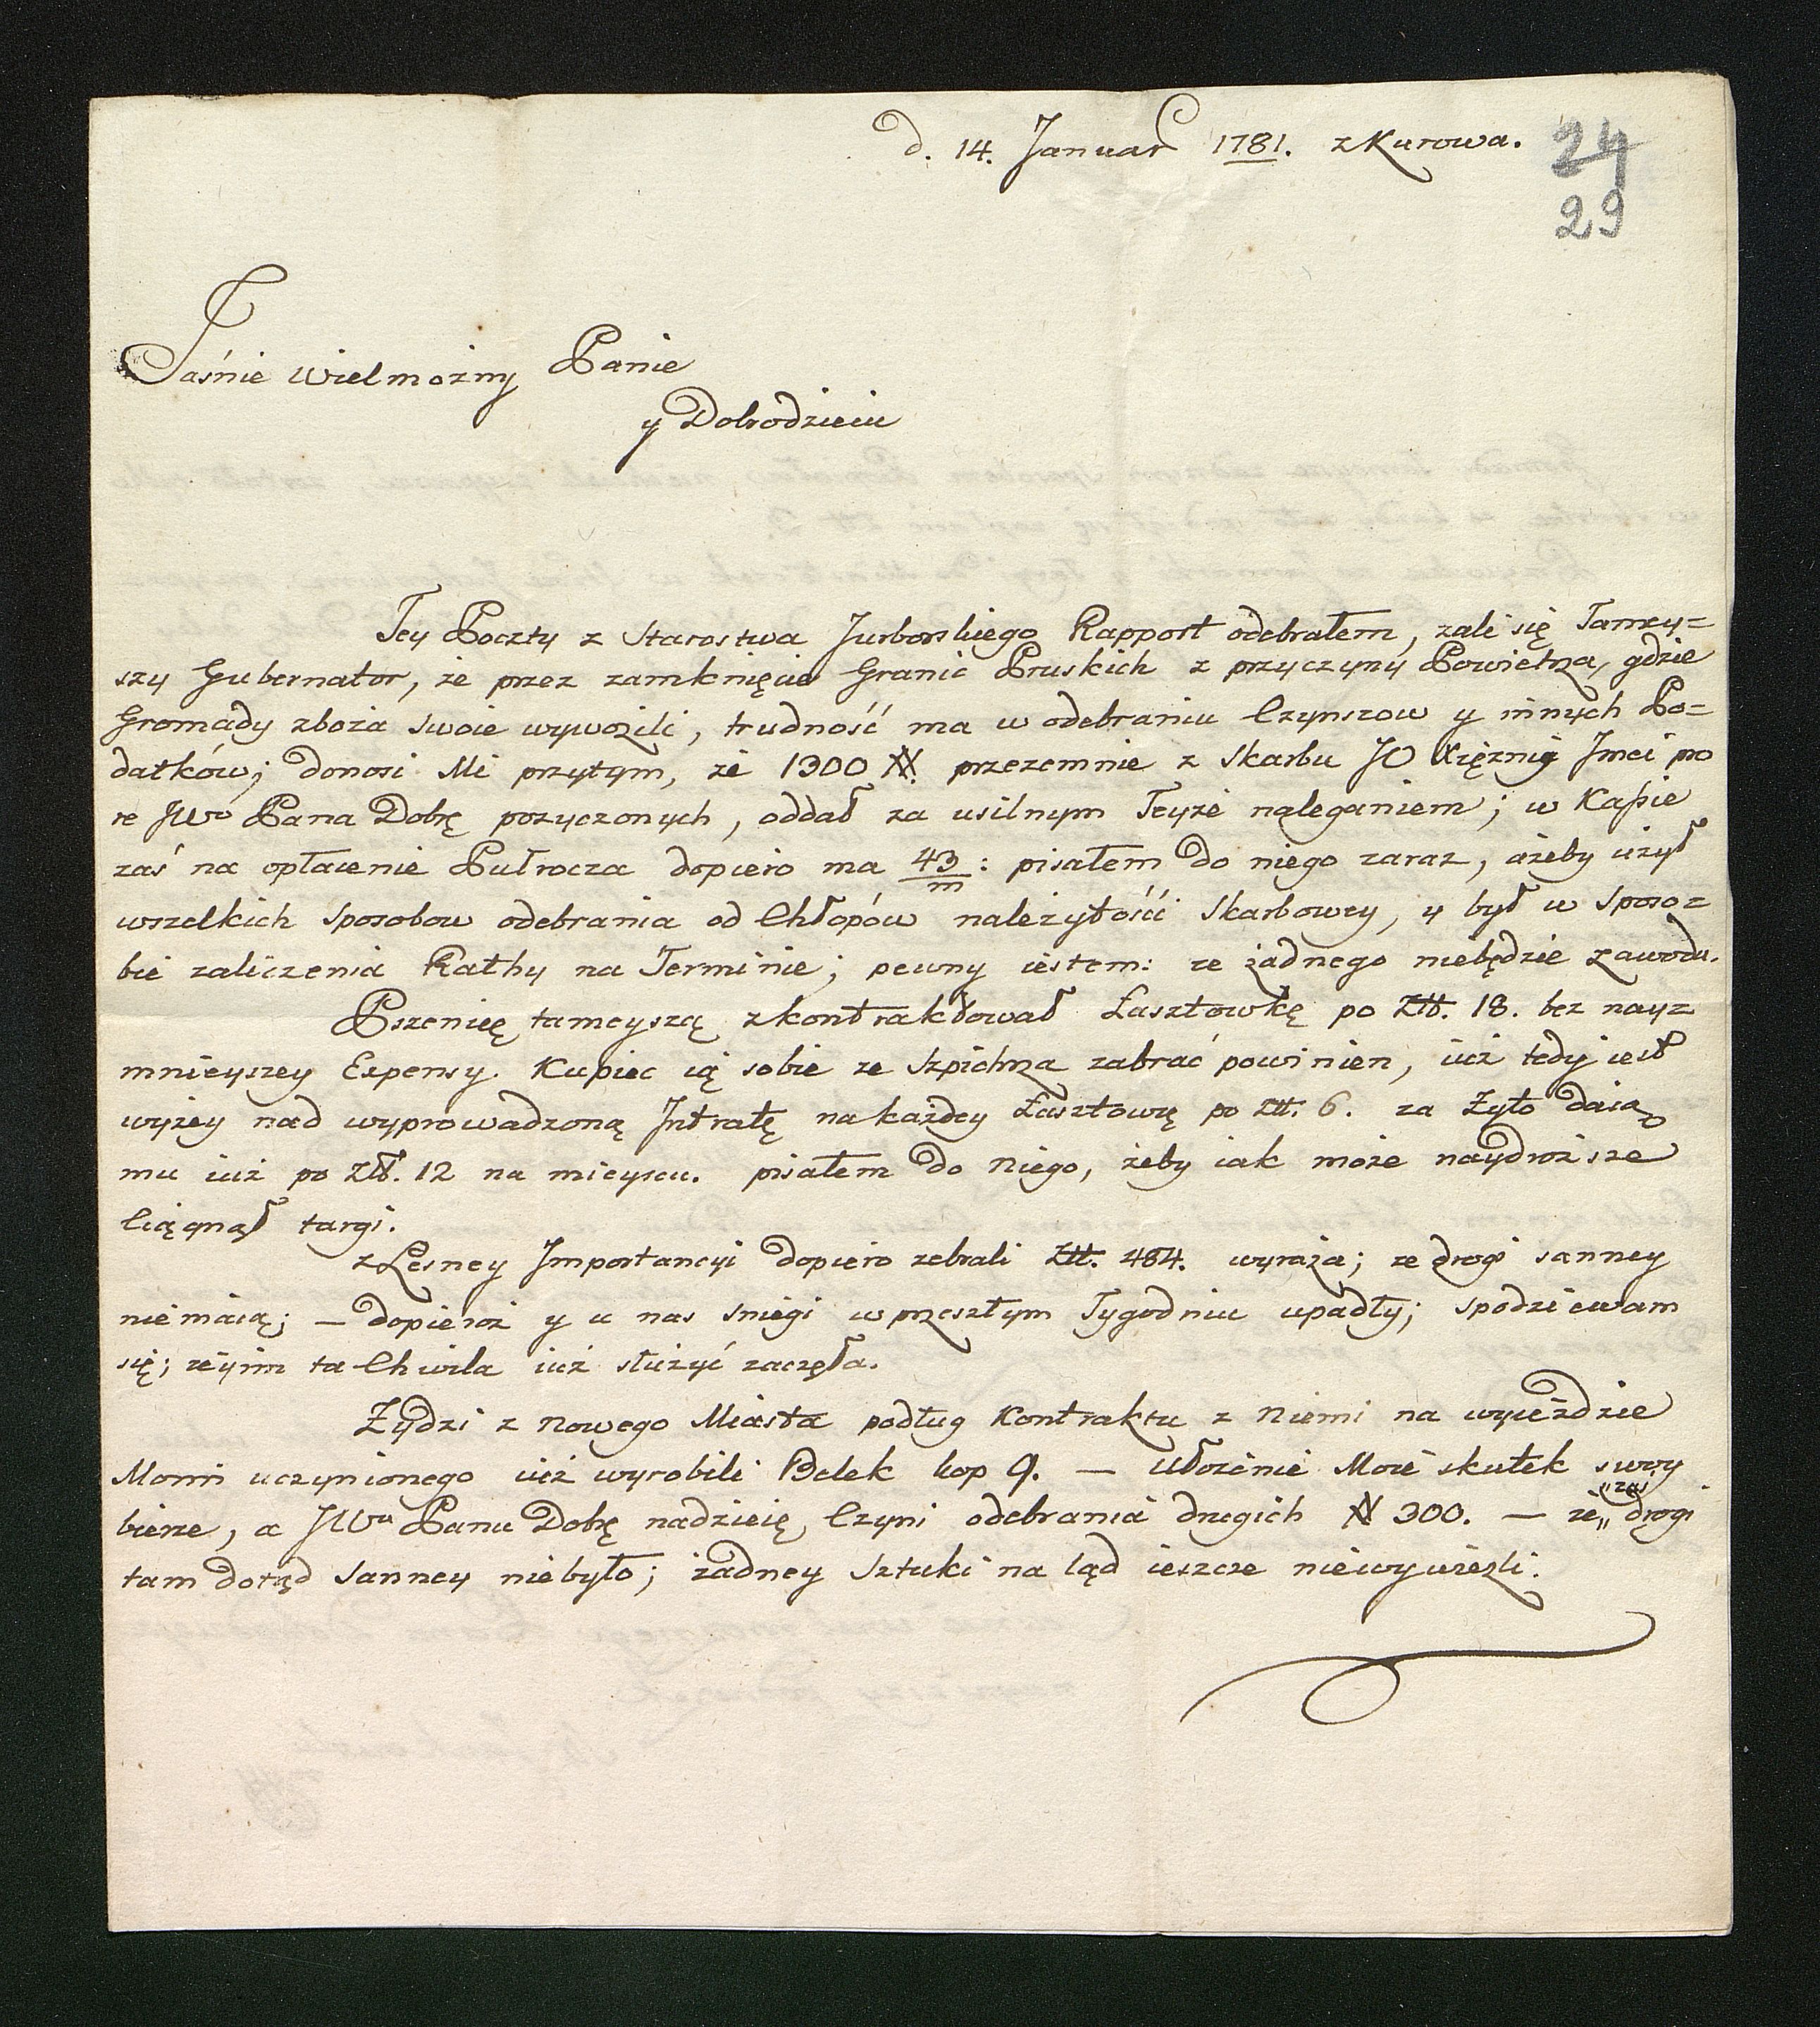 d. 14. Januar 1781. z Kurowa.
24
29
Jaśnie Wielmożny Panie
y Dobrodzieiu
Tey Poczty z Starostwa Jurborskiego Rapport odebrałem, zali się Tamey=
szy Gubernator, że przez zamknięcie Granic Pruskich z przyczyny Powietrza, gdzie
Gromady zboża swoie wywozili, trudność ma w odebraniu Czynszow y innych Po=
datków; donosi Mi przytym, że 1300 # przezemnie z Skarbu JO Xiężnig Jmci po
re JWo Pana Dobrę pozyczonych, oddał za usilnym Teyże naleganiem; w Kaßie
zaś na opłacenie Pułrocza dopiero ma 43/m: pisałem do niego zaraz, ażeby użył
wszelkich sposobow odebrania od Chłopów należytości Skarbowey, y był w sposo=
bie zaliczenia Rathy na Terminie; pewny iestem: ze żadnego niebędzie zawodu.
Pszenię tameyszą zkontraktował Łasztowkę po Ztt. 18. bez nay=
mnieyszey Expensy. Kupiec ią sobie ze Szpichrza zabrać powinien, iuż tedy iest
wyżey nad wyprowadzoną Jntratę na każdey Łasztowzę po Ztt. 6. za Zyto daią
mu iuż po Ztt. 12 na mieyscu. pisałem do Niego, żeby iak może naydroższe
Ciągnął targi.
z Lesney Importancyi dopiero zebrali Ztt. 484. wyraża; ze drogi sanney
niemaią; — dopieroż y u nas sniegi w przeszłym Tygodniu upadły; spodziewam
się; zeyim ta Chwila iuż służyć zaczęła.
Żydzi z Nowego Miasta podług Kontraktu z Niemi na wyieździe
Moim uczynionego iuż wyrobili Belek kop 9. — Ułożenie Moie skutek swoy
bierze, a JWu Panu Dobrę nadzieię Czyni odebrania drugich # 300. — że „za„ drogi
tam dotąd Sanney niebyło; żadney Sztuki na ląd ieszcze niewywiezli.